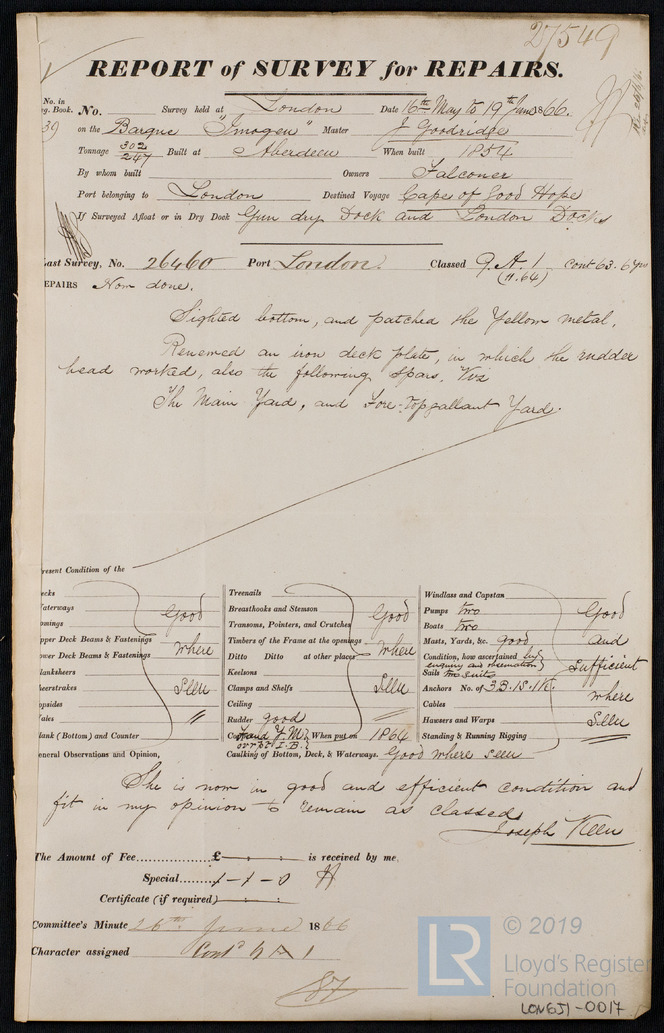 27549
REPORT of SURVEY for REPAIRS.
No. in
eg. Book. No. Survey held at London Date 16th May to 19th June 1866.
39 on the Barque "Imogen" Master J Goodridge
Tonnage 302/247 Built at Aberdeen When built 1854
By whom built Owners Falconer
Port belonging to London Destined Voyage Cape of Good Hope
If Surveyed Afloat or in Dry Dock Gun dry Dock and London Docks
ast Survey, No. 26460 Port London. Classed 9. A. 1 Cont 63. 6 yrs
(11.64)
EPAIRS Now done.
Sighted bottom, and patched the Yellow metal.
Renewed an iron deck plate, in which the rudder
head worked, also the following Spars, Viz
The Main Yard, and Fore-topgallant Yard.
resent Condition of the
ecks
aterways Good
omings
pper Deck Beams & Fastenings where
ower Deck Beams & Fastenings
lanksheers
heerstrakes Seen
opsides
ales "
lank (Bottom) and Counter
Treenails
Breasthooks and Stemson
Transoms, Pointers, and Crutches Good
Timbers of the Frame at the openings where
Ditto Ditto at other places
Keelsons
Clamps and Shelfs Seen
Ceiling
Rudder good "
and Y. M. When put on 1864
over I. B.
Caulking of Bottom, Deck, & Waterways. Good where seen
Windlass and Capstan
Pumps two Good
Boats two
Masts, Yards, &c. good and
Condition, how ascertained by
enquiry and observation sufficient
Sails two suits
Anchors No. of 3. B. 1S. 1K.
Cables where
Hawsers and Warps Seen
Standing & Running Rigging
eneral Observations and Opinion,
She is now in good and efficient condition and
fit in my opinion to remain as classed
Joseph Keen
The Amount of Fee..............£ is received by me,
Special........1-1-0 H
Certificate (if required)
Committee's Minute 26th June 1866
Character assigned Contd 9 A 1
LR
© 2019
Lloyd's Register
Foundation
LON651-0017